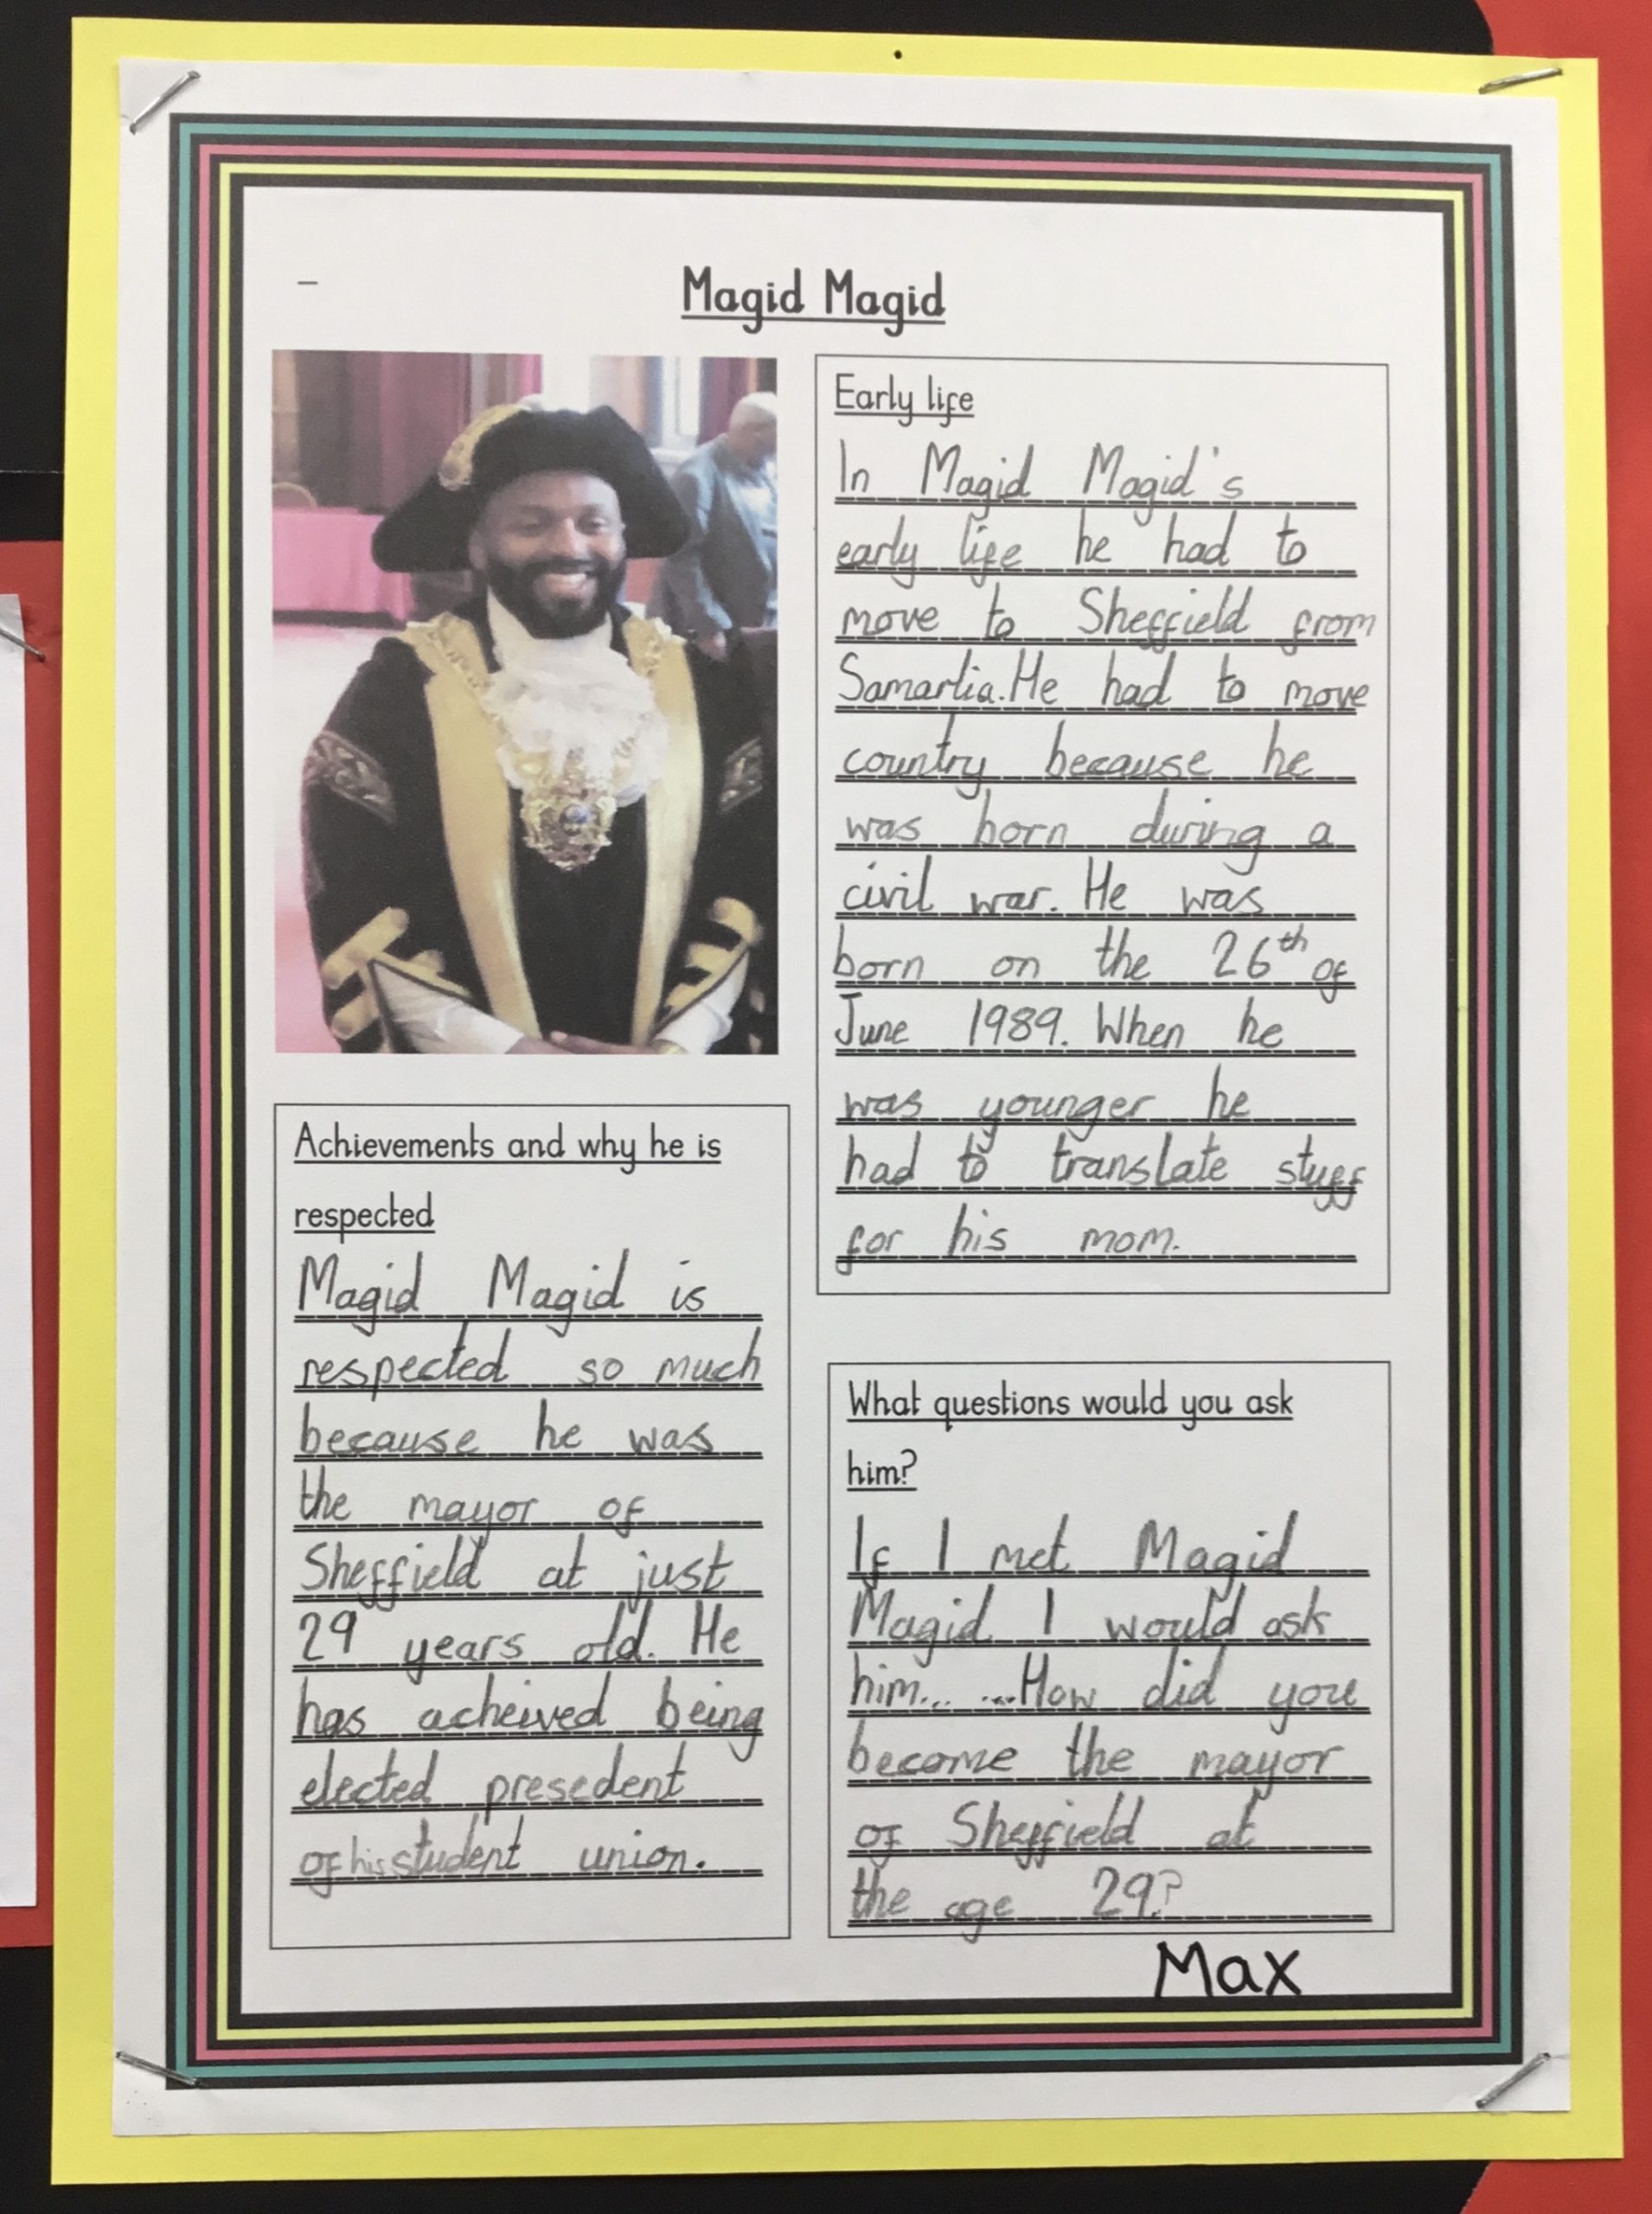 Magid Magid
Early life
In Magid Magid's
early life he had to
move to Sheffield from
Samarlia. He had to move
country because he
was born during a
civil war. He was
born on the 26th of
June 1989. When he
was younger he
had to translate stuff
for his mom.
Achievements and why he is
respected
Magid Magid is
respected so much
because he was
the mayor of
Sheffield at just
29 years old. He
has acheived being
elected presedent
of his student union.
What questions would you ask
him?
If I met Magid
Magid I would ask
him... ...How did you
become the mayor
of Sheffield at
the age 29?
Max